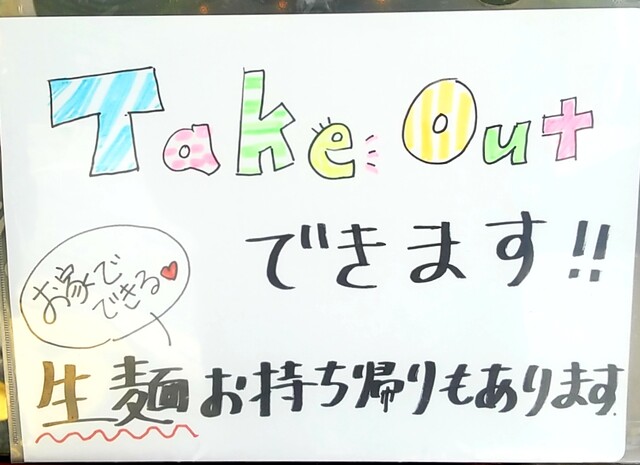 Take Out
できます!!
お家で
できる♥
生麺お持ち帰りもあります